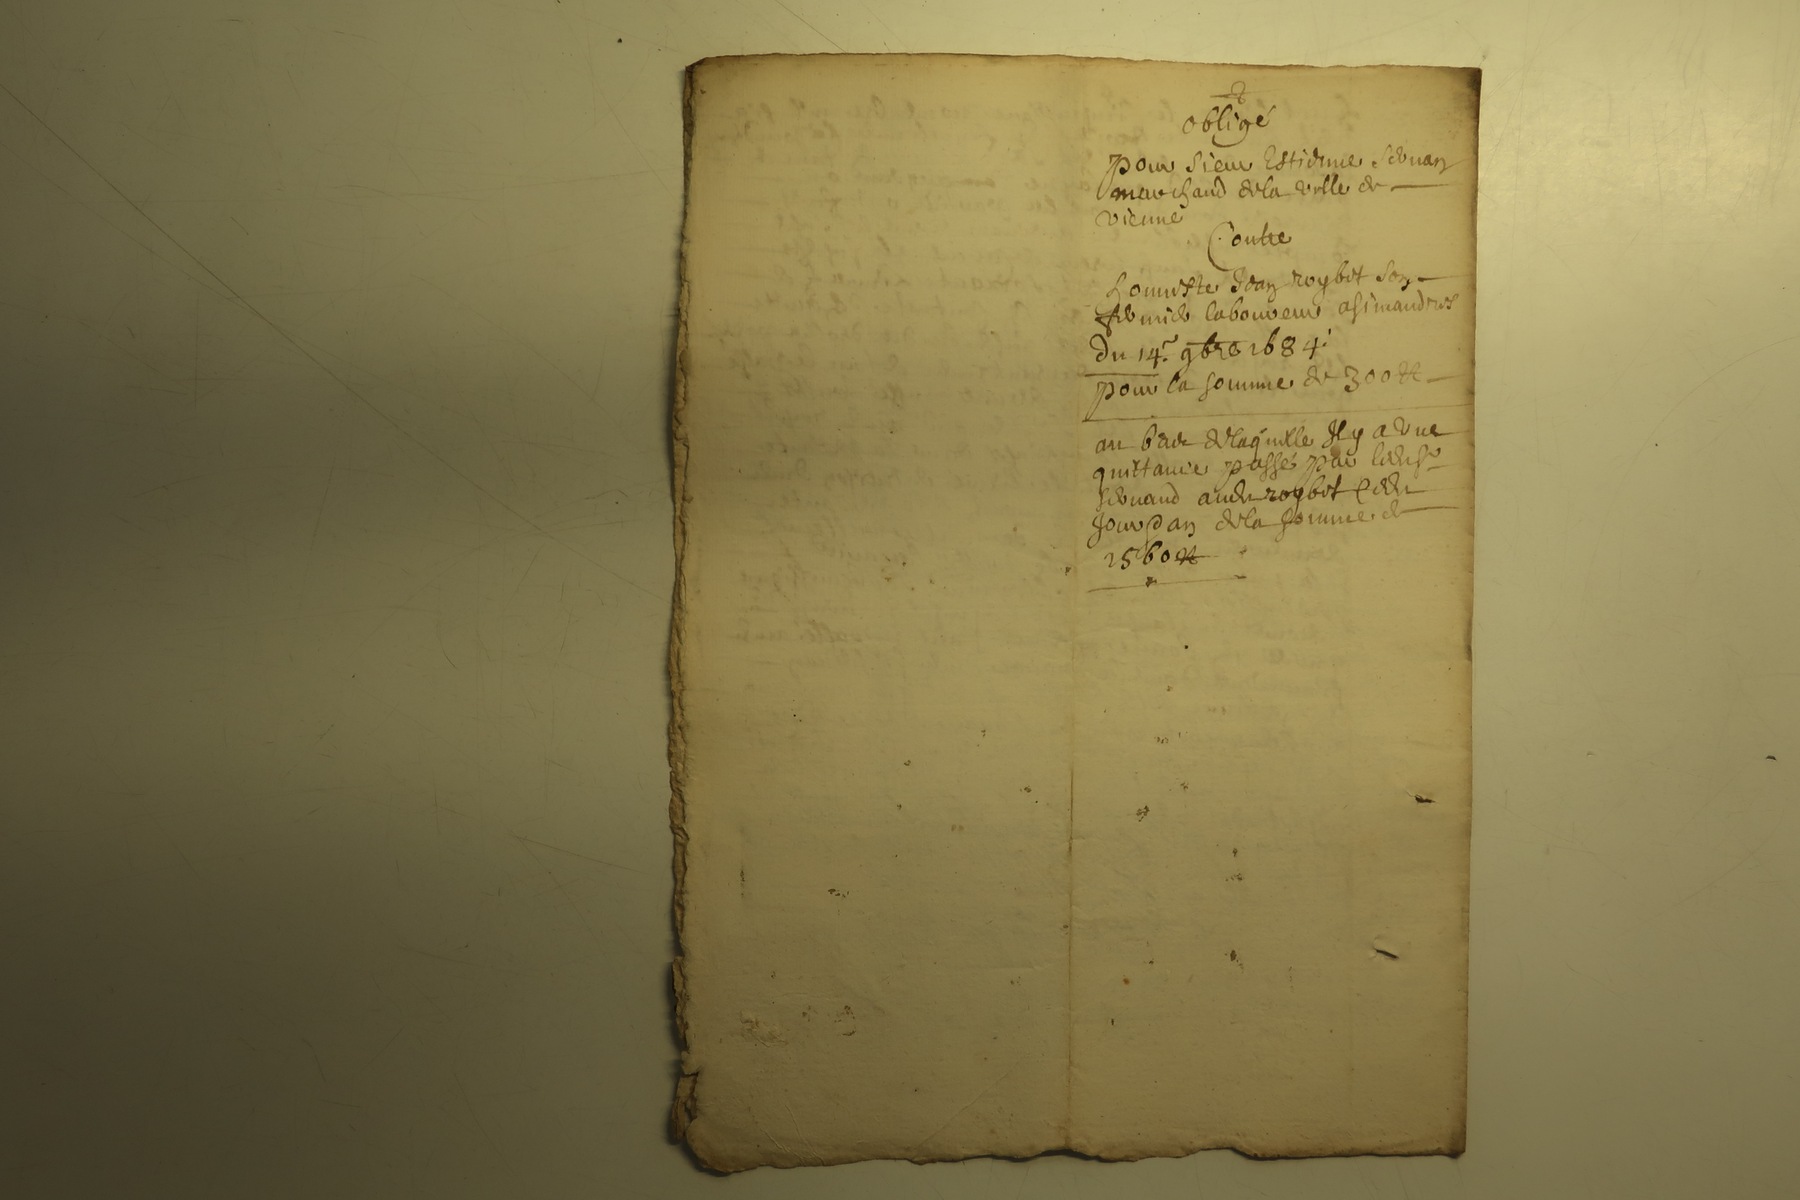 obligé
pour sieur Estienne Seruan
marchand de la ville de
vienne
Contre
honneste Jean roybet son
fermier laboureur a simandres
du 14e 9bre 1684
pour la somme de 300 ₶
au bas de laquelle Il y a une
quittance passé par ledit sr
seruand audit roybet
Jourdan de la somme de
1560 ₶